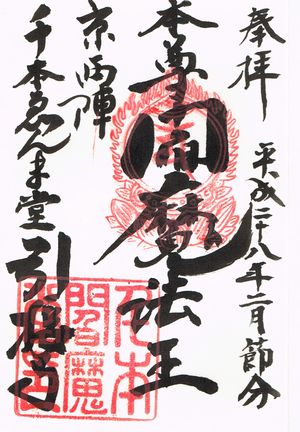 奉拝
平成二十八年二月節分
本尊閻魔法王
京西陣
千本ゑんま堂
引接寺
千本
閻魔